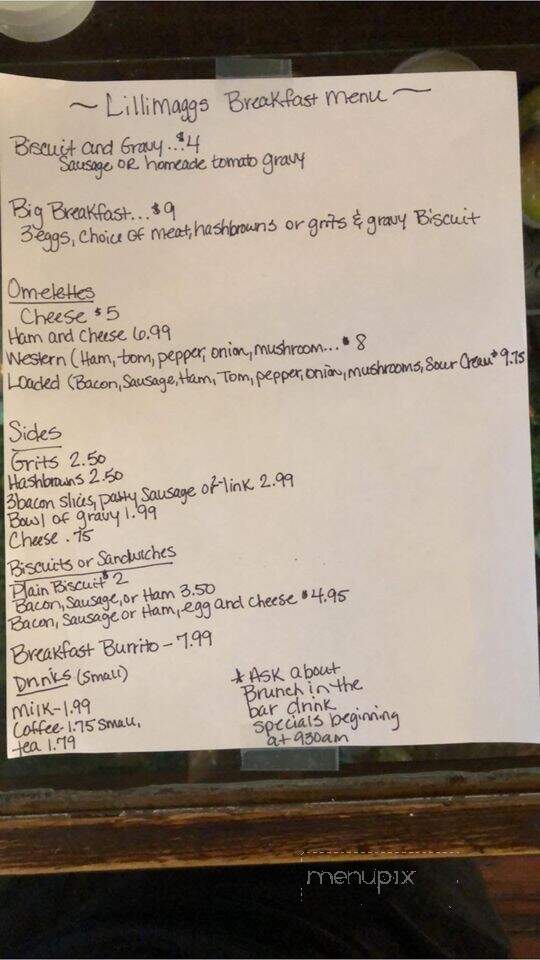 ~ Lillimaggs Breakfast menu ~
Biscuit and Gravy...$4
Sausage OR homeade tomato gravy
Big Breakfast...$9
3 eggs, choice of meat, hashbrowns or grits & gravy Biscuit
Omelettes
Cheese $5
Ham and Cheese 6.99
Western (Ham, tom, pepper, onion, mushroom...$8
Loaded (Bacon, Sausage, Ham, Tom, pepper, onion, mushrooms, Sour Cream $9.75
Sides
Grits 2.50
Hashbrowns 2.50
3 bacon slices, patty sausage or 2-link 2.99
Bowl of gravy 1.99
Cheese .75
Biscuits or Sandwiches
Plain Biscuit $2
Bacon, Sausage, or Ham 3.50
Bacon, Sausage or Ham, egg and cheese $4.95
Breakfast Burrito - 7.99
Drinks (small)
milk - 1.99
Coffee - 1.75 small,
tea 1.79
* Ask about
Brunch in the
bar drink
specials beginning
at 930am
menupix